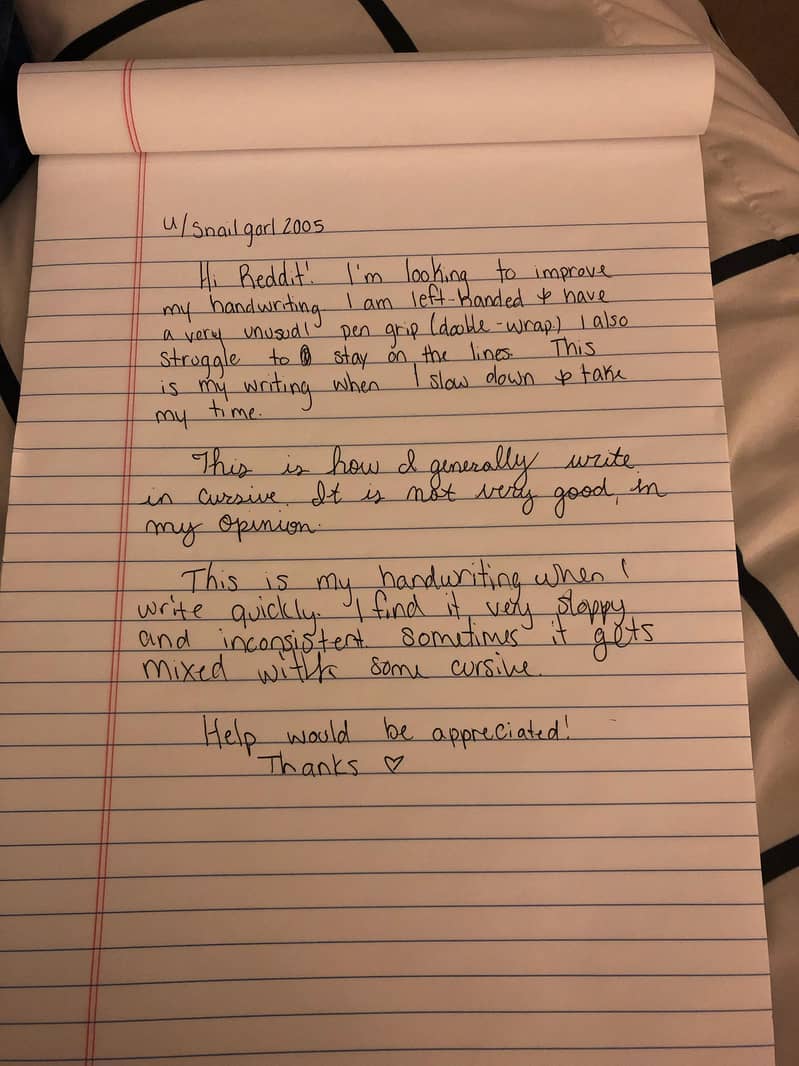 u/snailgarl2005
Hi Reddit! I'm looking to improve
my handwriting. I am left-handed & have
a very unusual pen grip (double-wrap.) I also
struggle to stay on the lines. This
is my writing when I slow down & take
my time.
This is how I generally write
in cursive. It is not very good, in
my opinion.
This is my handwriting when I
write quickly. I find it very sloppy
and inconsistent. Sometimes it gets
mixed with some cursive.
Help would be appreciated!
Thanks ♡